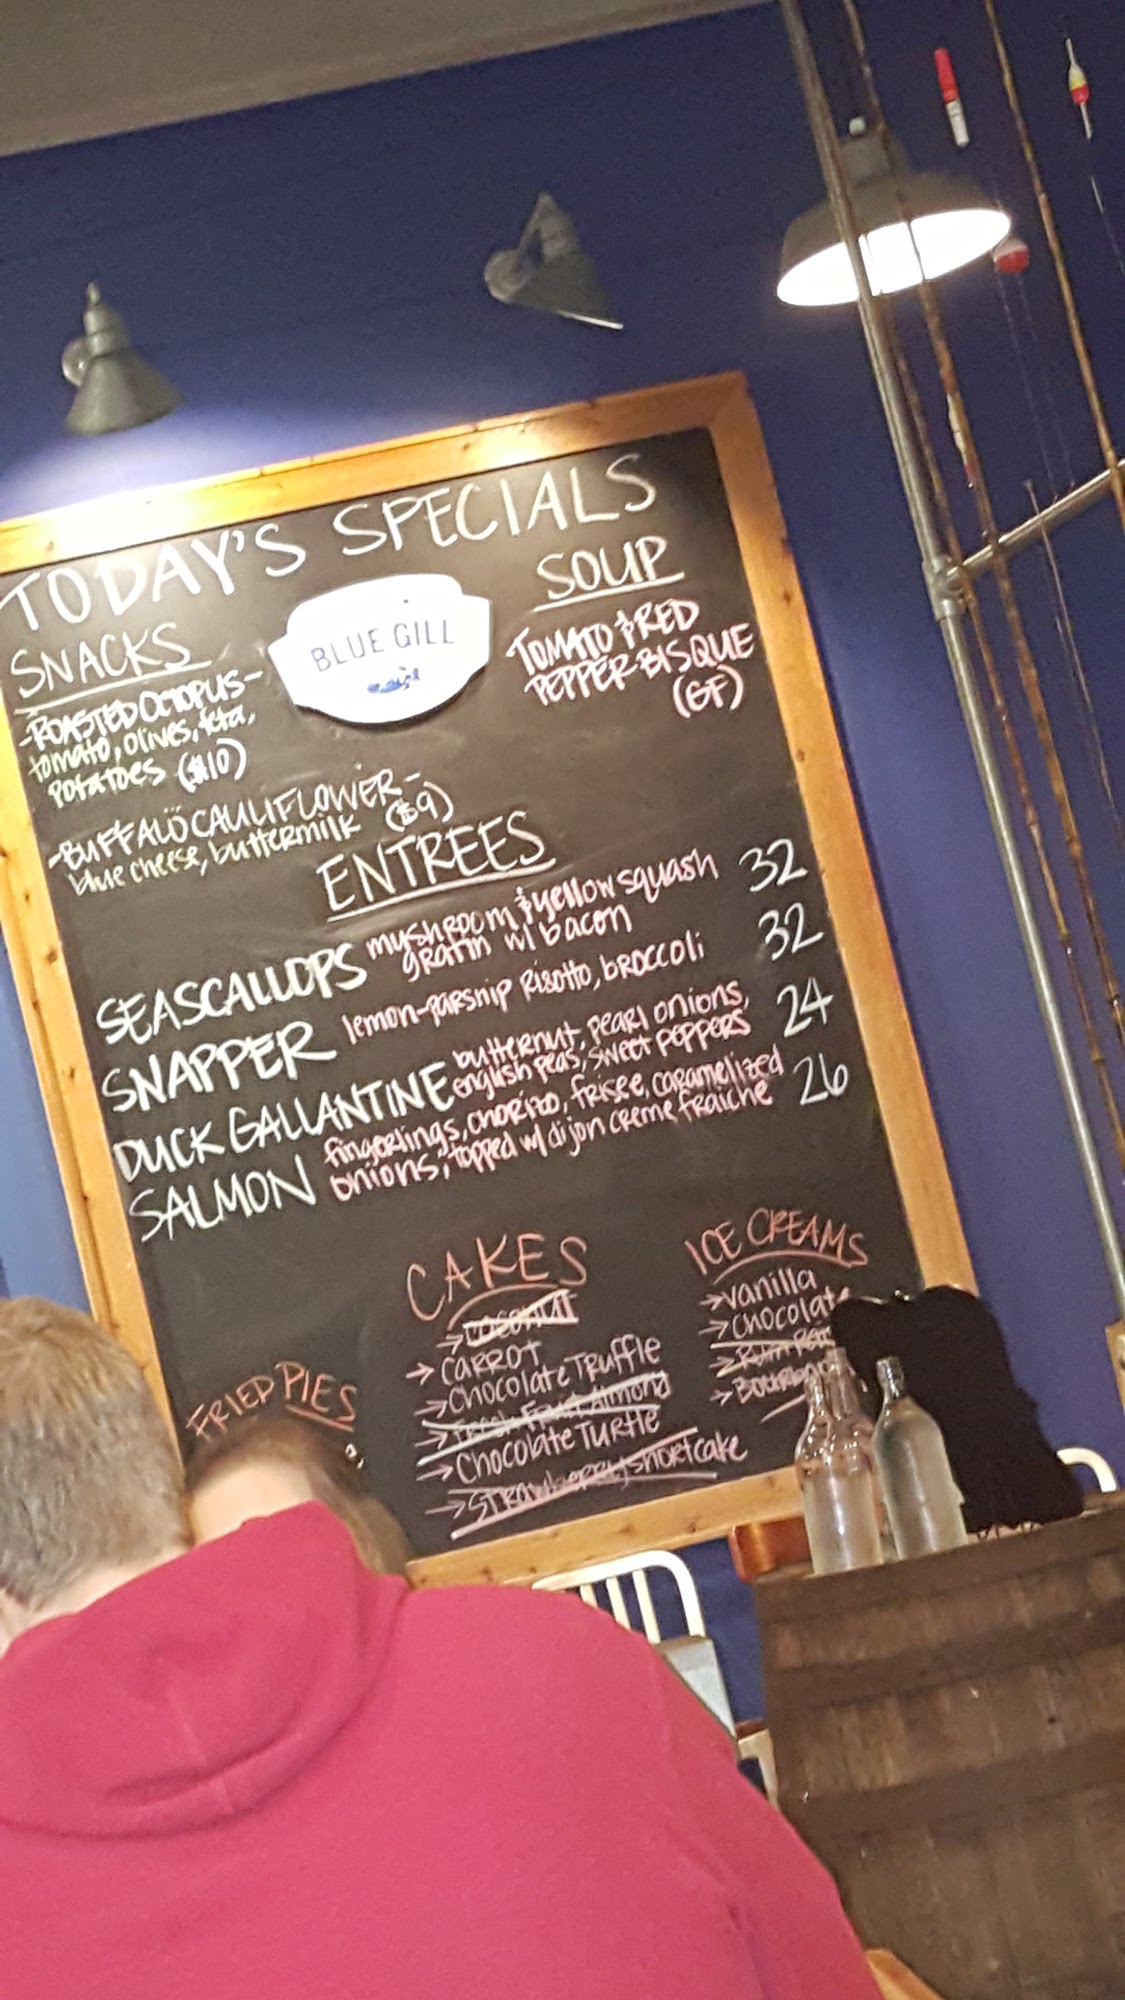 TODAY'S SPECIALS
BLUE GILL
SNACKS
-ROASTED OCTOPUS-
tomato, olives, feta,
potatoes ($10)
-BUFFALO CAULIFLOWER-
blue cheese, buttermilk ($9)
SOUP
TOMATO & RED
PEPPER BISQUE
(GF)
ENTREES
SEASCALLOPS mushroom & yellow squash 32
gratin w/ bacon
SNAPPER lemon-parsnip Risotto, broccoli 32
DUCK GALLANTINE butternut, pearl onions, 24
english peas, sweet peppers
SALMON fingerlings, chorizo, frisee, caramelized 26
onions, topped w/ dijon creme fraiche
FRIED PIES
CAKES
→ COCONUT
→ CARROT
→ Chocolate Truffle
→ Fresh Fruit Almond
→ Chocolate Turtle
→ Strawberry shortcake
ICE CREAMS
→ vanilla
→ Chocolate
→ Rum
→ Bourbon